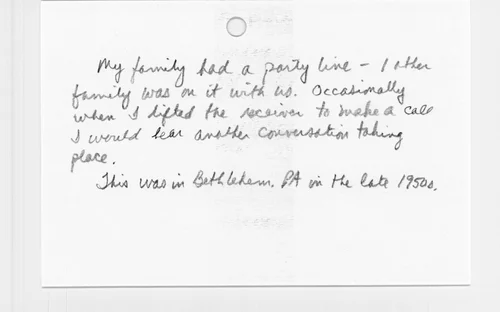 My family had a party line - 1 other
family was on it with us. Occasionally
when I lifted the receiver to make a call
I would hear another conversation taking
place.
This was in Bethlehem, PA in the late 1950s.